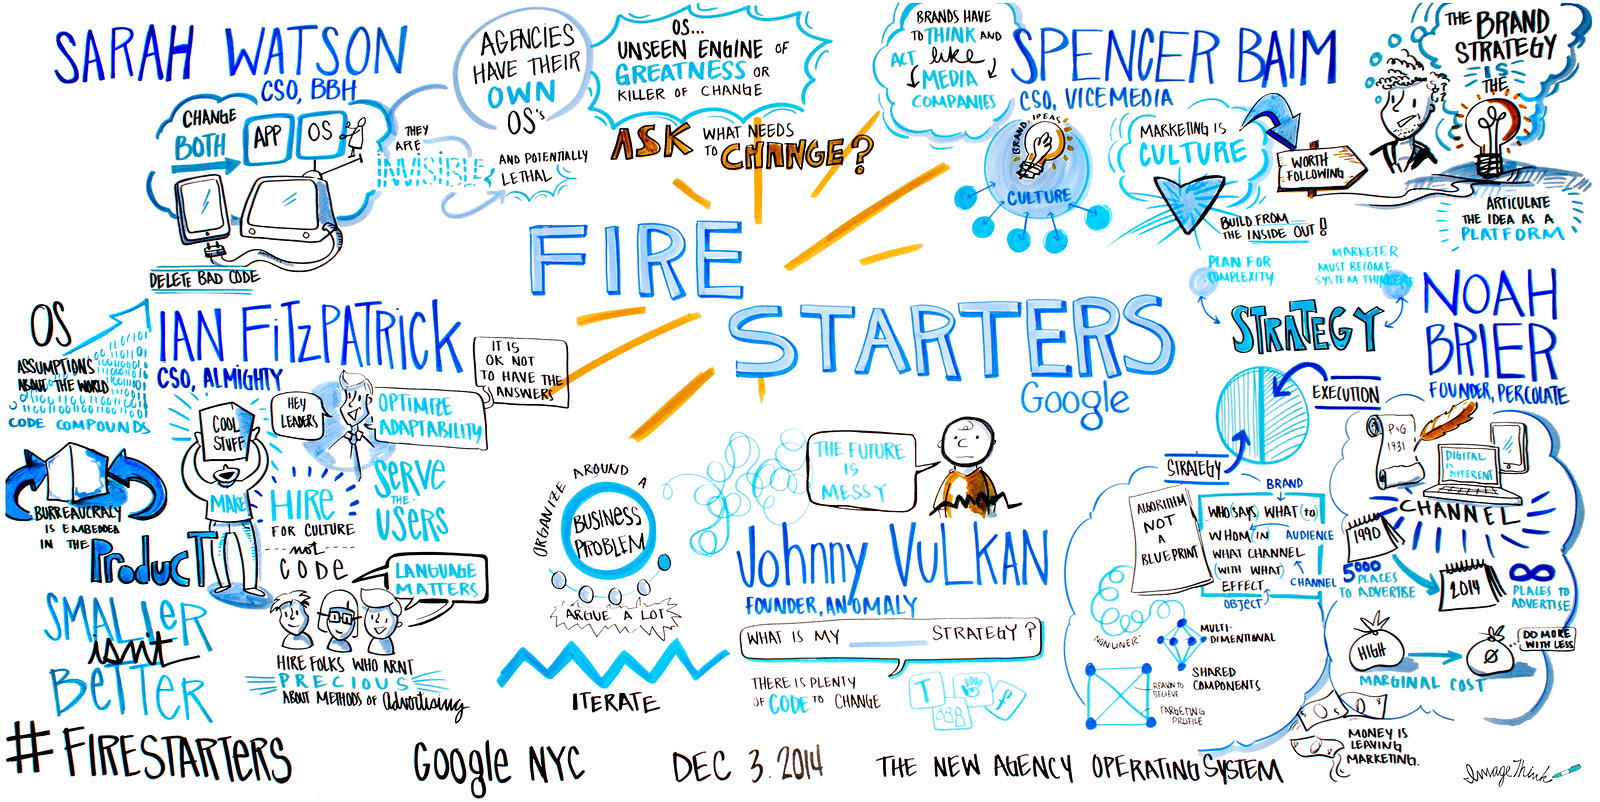 SARAH WATSON
CSO, BBH
CHANGE
BOTH
APP
OS
DELETE BAD CODE
THEY
ARE
INVISIBLE
AND POTENTIALLY
LETHAL
AGENCIES
HAVE THEIR
OWN
OS's
OS...
UNSEEN ENGINE OF
GREATNESS OR
KILLER OF CHANGE
ASK WHAT NEEDS
TO CHANGE?
FIRE
STARTERS
Google
BRANDS HAVE
TO THINK AND
ACT like
MEDIA
COMPANIES
SPENCER BAIM
CSO, VICEMEDIA
BRAND IDEAS
CULTURE
MARKETING IS
CULTURE
BUILD FROM
THE INSIDE OUT!
WORTH
FOLLOWING
THE BRAND
STRATEGY
IS
THE
ARTICULATE
THE IDEA AS A
PLATFORM
OS
ASSUMPTIONS
ABOUT THE WORLD
CODE COMPOUNDS
IAN FITZPATRICK
CSO, ALMIGHTY
COOL
STUFF
MAKE
HEY
LEADERS
OPTIMIZE
ADAPTABILITY
IT IS
OK NOT
TO HAVE THE
ANSWERS
SERVE
THE
USERS
HIRE
FOR CULTURE
not
CODE
BURREAUCRACY
IS EMBEDDED
IN THE
PRODUCT
LANGUAGE
MATTERS
SMALLER
isn't
BETTER
HIRE FOLKS WHO ARNT
PRECIOUS
ABOUT METHODS OF Advertising
ORGANIZE AROUND A
BUSINESS
PROBLEM
ARGUE A LOT
ITERATE
THE FUTURE
IS
MESSY
Johnny VULKAN
FOUNDER, ANOMALY
WHAT IS MY ____ STRATEGY?
THERE IS PLENTY
OF CODE TO CHANGE
T
f
PLAN FOR
COMPLEXITY
MARKETER
MUST BECOME
SYSTEM THINKERS
STRATEGY
NOAH
BRIER
FOUNDER, PERCOLATE
EXECUTION
STRATEGY
ALGORITHM
NOT
A
BLUEPRINT
BRAND
WHO SAYS WHAT (TO)
WHOM (IN AUDIENCE
WHAT CHANNEL
(WITH WHAT) CHANNEL
EFFECT
OBJECT
NONLINER
MULTI-
DIMENTIONAL
SHARED
COMPONENTS
REASON TO
BELIEVE
TARGETING
PROFILE
P&G
1931
DIGITAL
IS DIFFERENT
CHANNEL
1990
5000
PLACES
TO ADVERTISE
2014
8
PLACES TO
ADVERTISE
HIGH
Ø
DO MORE
WITH LESS
MARGINAL COST
MONEY IS
LEAVING
MARKETING.
#FIRESTARTERS Google NYC DEC 3. 2014 THE NEW AGENCY OPERATING SYSTEM
ImageThink